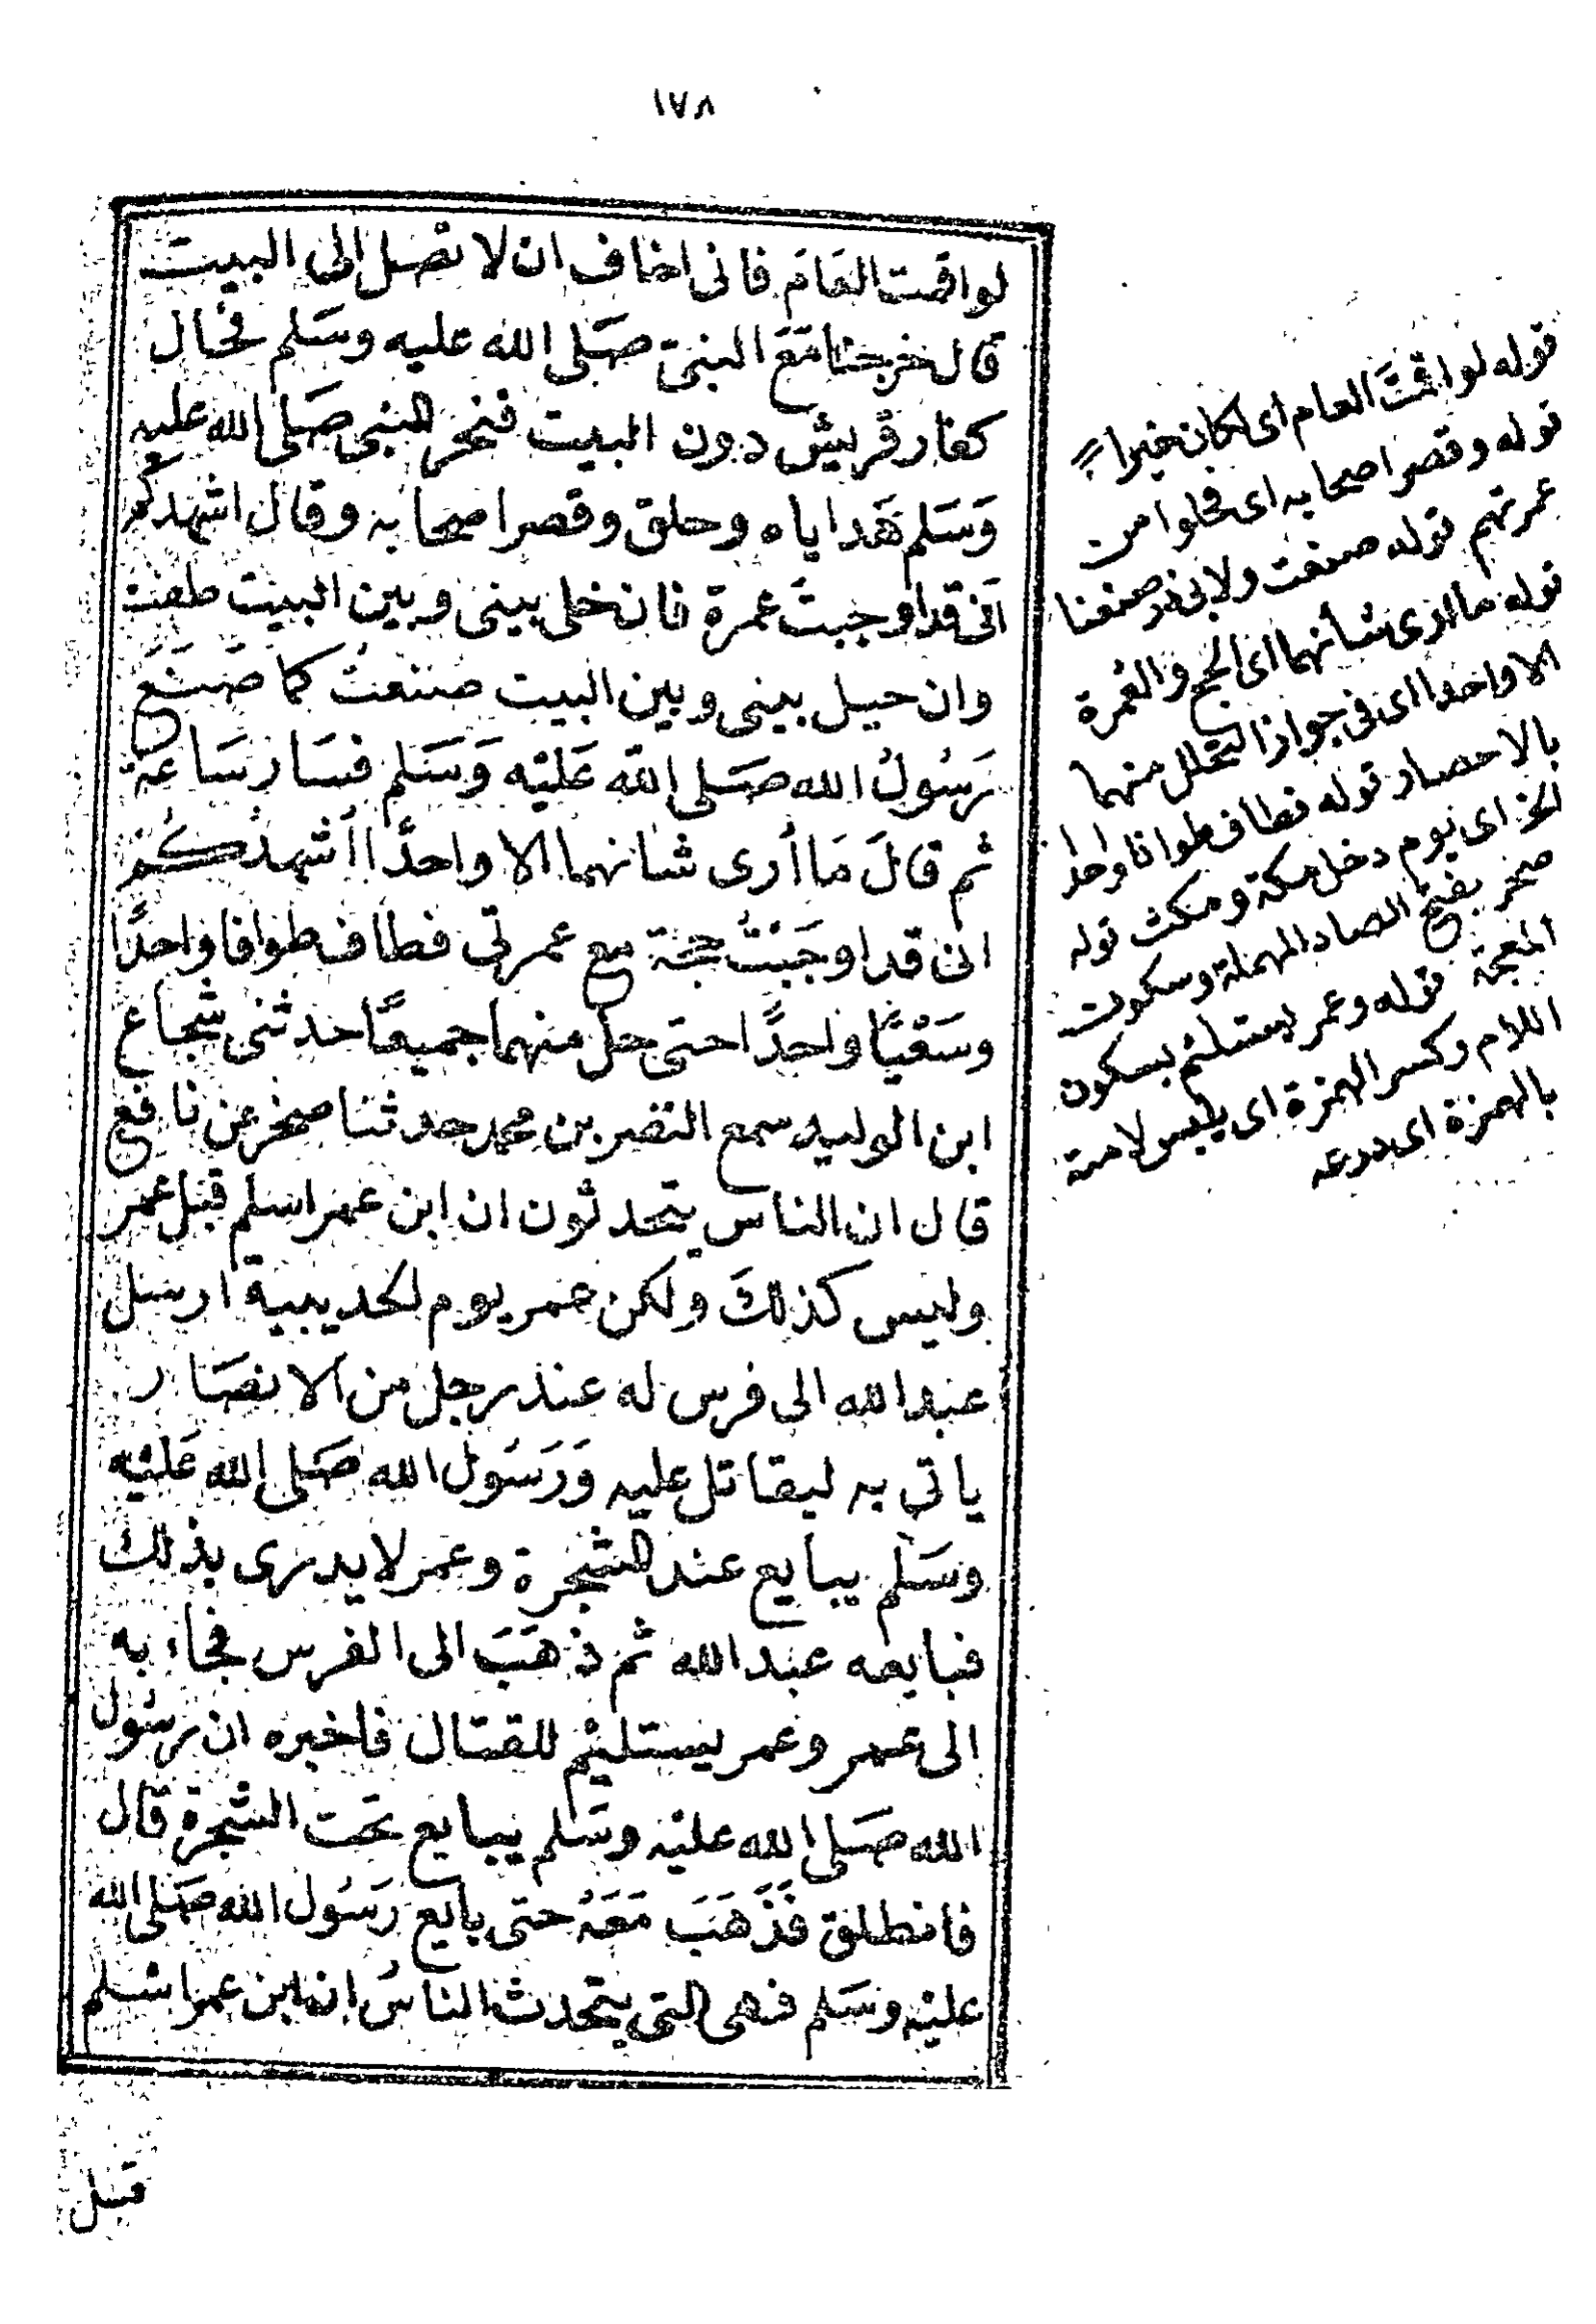 ١٧٨
لو اقمت العَامَ فانى اخاف ان لا تصل الى البيت
قال خرجنا مَعَ النبىّ صَلى الله عليه وسَلم فحَال
كفار قريش دون البيت فنحر النبى صَلى الله عليه
وَسَلم هَداياه وحلق وقصر اصحابه وقال اشهدكم
اَنى قد اوجبتُ عمرة فان خلى بينى وبين البيت طفت
وان حيل بينى وبين البيت صنعتُ كما صَنَعَ
رَسُولُ الله صَلى الله عَليْه وَسَلم فسَار سَاعة
ثم قالَ مَا أرى شانهما الا واحدًا اُشهدُكُمْ
انى قد اوجَبْتُ حجة مع عمرتى فطاف طوافا واحدًا
وسَعْيًا واحدًا حتى حل منهما جميعًا حدثنى شجاع
ابن الوليد سمع النضر بن محمد حدثنا صخر عن نافع
قال ان الناس يتحدثون ان ابن عمر اسلم قبل عمر
وليس كذلكَ ولكن عمر يوم الحديبية ارسل
عبد الله الى فرس له عند رجل من الانصَار
ياتى به ليقاتل عليه وَرَسُول الله صَلى الله عَليْه
وسَلم يبايع عند الشجرة وعمر لا يدرى بذلك
فبايعه عبد الله ثم ذهَبَ الى الفرس فجاء به
الى عمر وعمر يستلئم للقتال فاخبره ان رسُول
الله صَلى الله عليْه وسَلم يبايع تحت الشجرة قال
فانطلق فَذَهَبَ مَعَهُ حتى بايع رَسُول الله صَلى الله
عليْه وسَلم فهى التى يتحدث الناسُ ان ابن عمر اسْلم
قبل
قوله لو اقمتَ العام اى لكان خيرا
قوله وقصر اصحابه اى فحلوا من
عمرتهم قوله صنعت ولابى ذر صنعنا
قوله ما ارى شأنهما اى الحج والعُمرة
الا واحدا اى فى جواز التحلل منهما
بالاحصار قوله فطاف طوافا واحدا
الخ اى يوم دخل مكة ومكث قوله
صخر بفتح الصاد المهملة وسكون
المعجمة قوله وعمر يستلئم بسكون
اللام وكسر الهمزة اى يلبس لامته
بالهمزة اى درعه